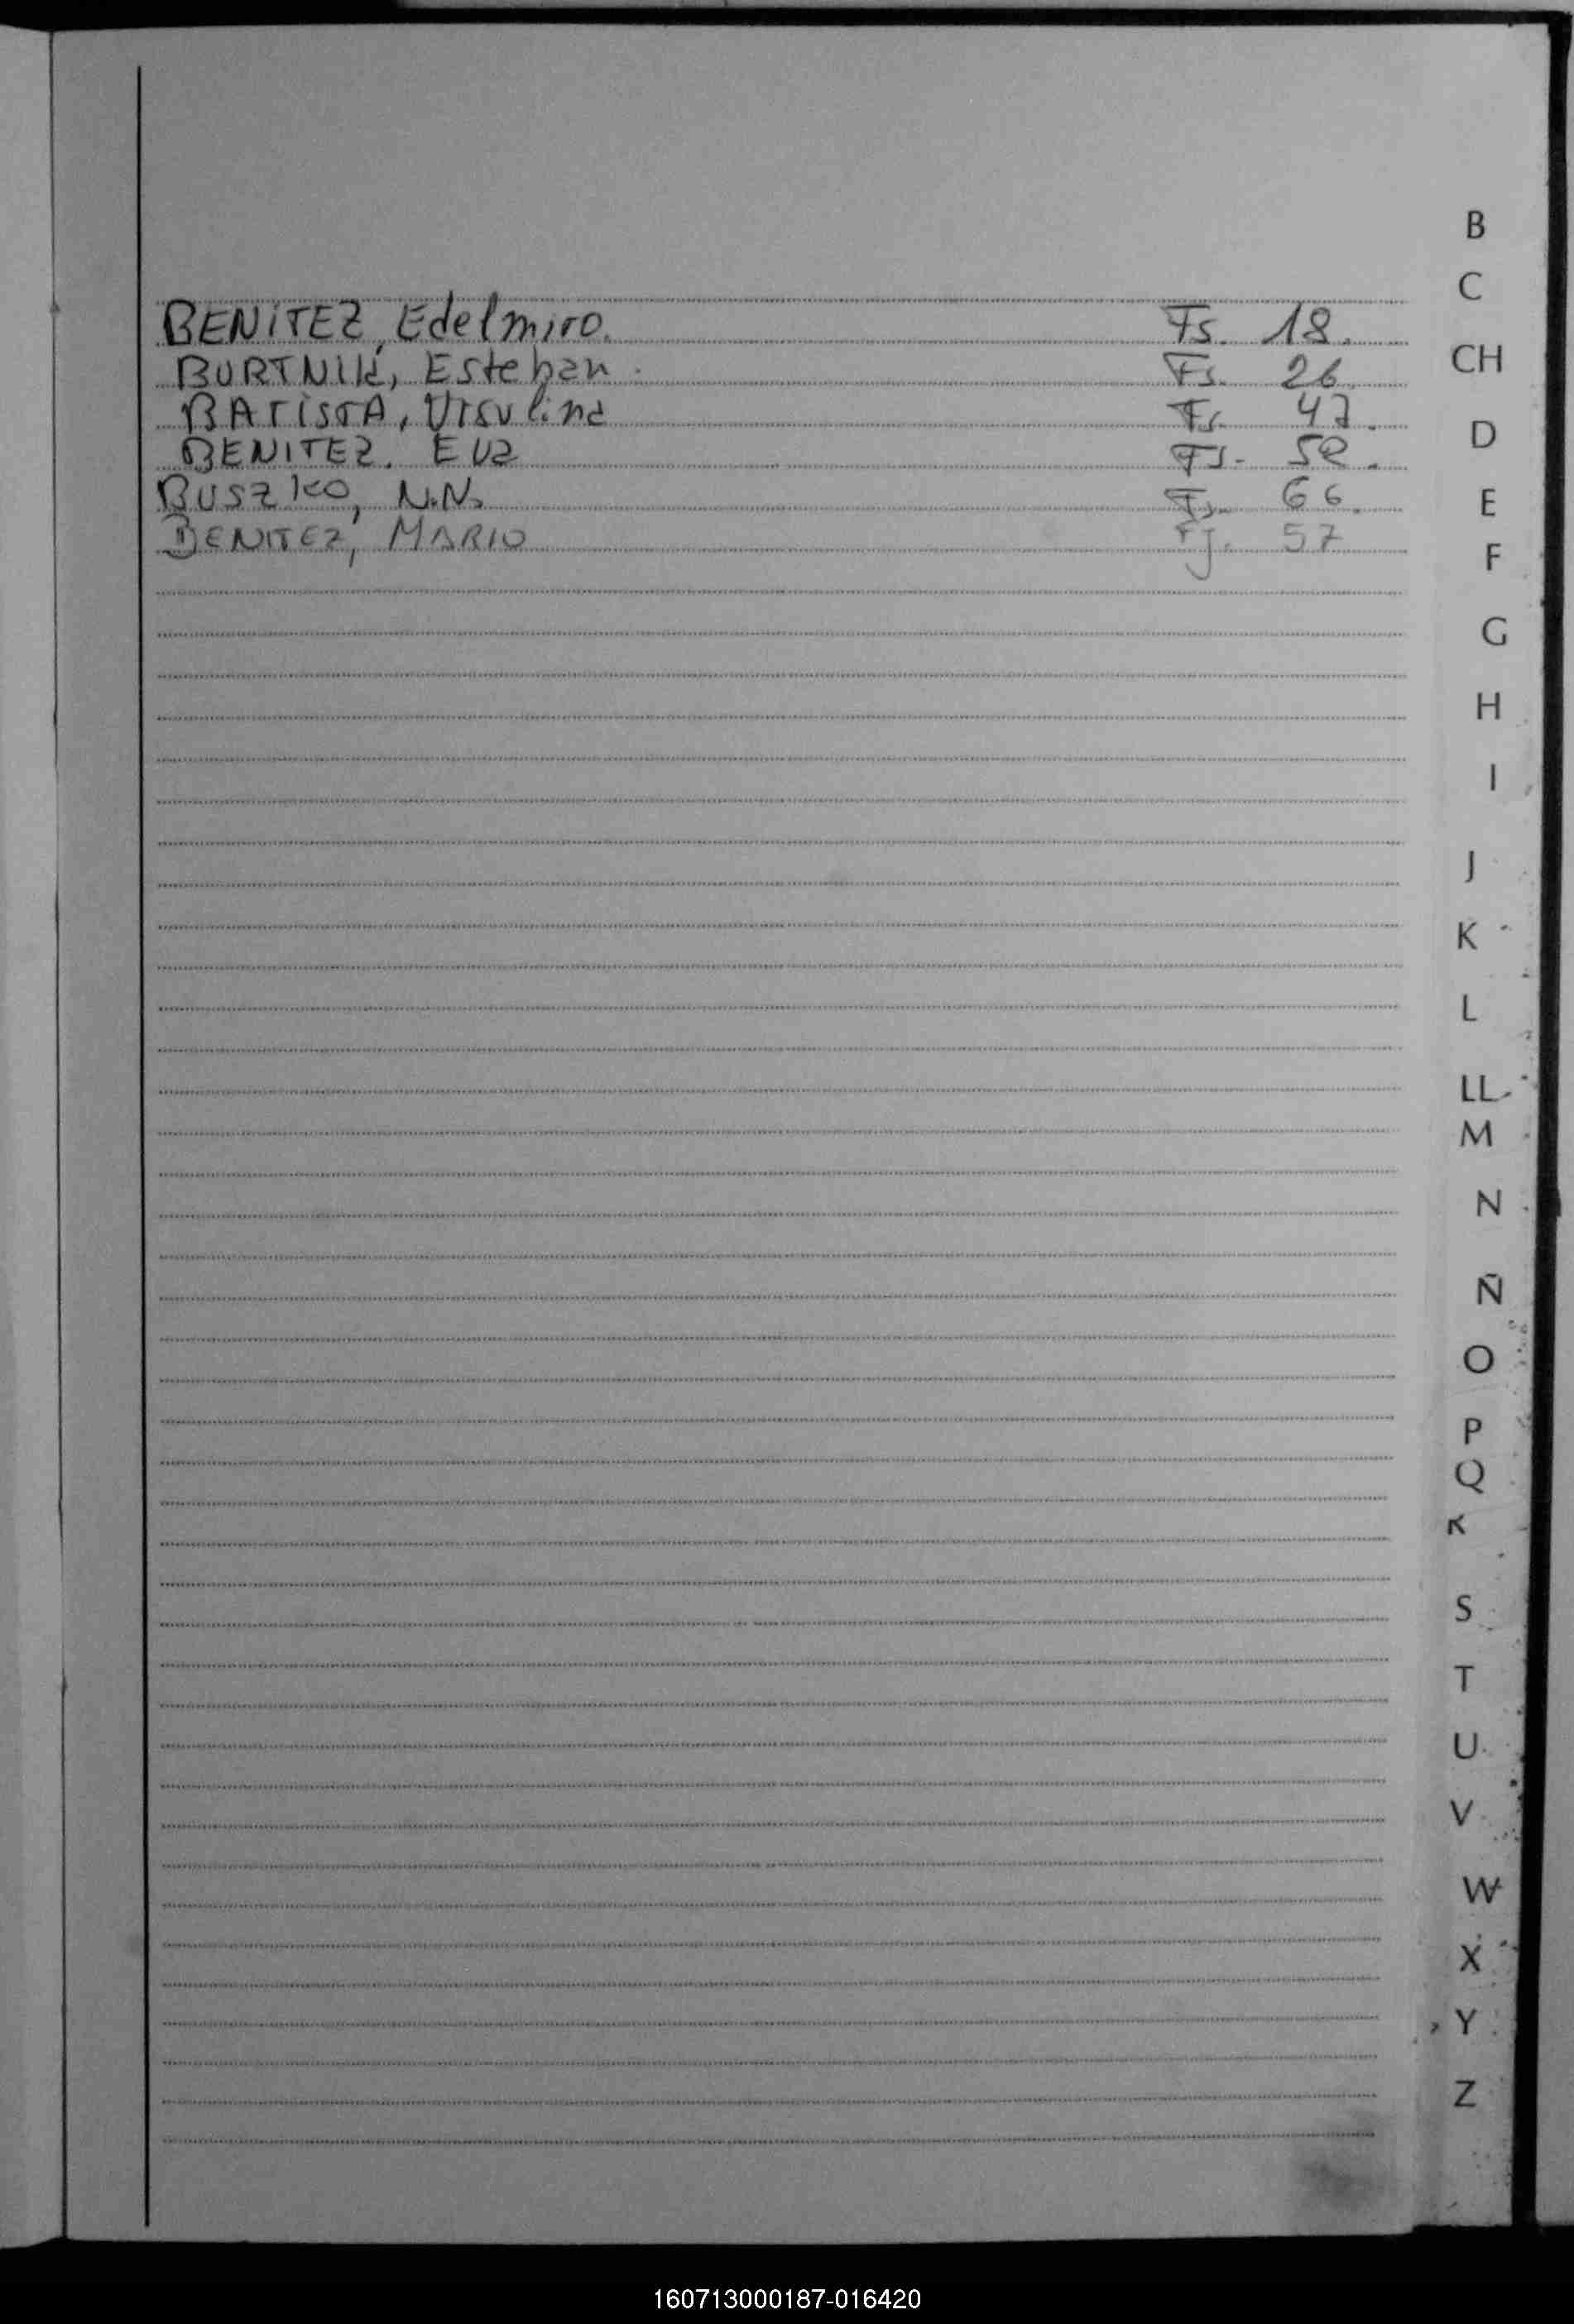 BENITEZ, Edelmiro. Fs. 18.
BURTNIK, Esteban. Fs. 26.
BATISTA, Ursulina Fs. 47.
BENITEZ. Eva Fs. 52.
BUSZKO, N.N. Fs. 66.
BENITEZ, MARIO Fj. 57
B
C
CH
D
E
F
G
H
I
J
K
L
LL
M
N
Ñ
O
P
Q
R
S
T
U
V
W
X
Y
Z
160713000187-016420